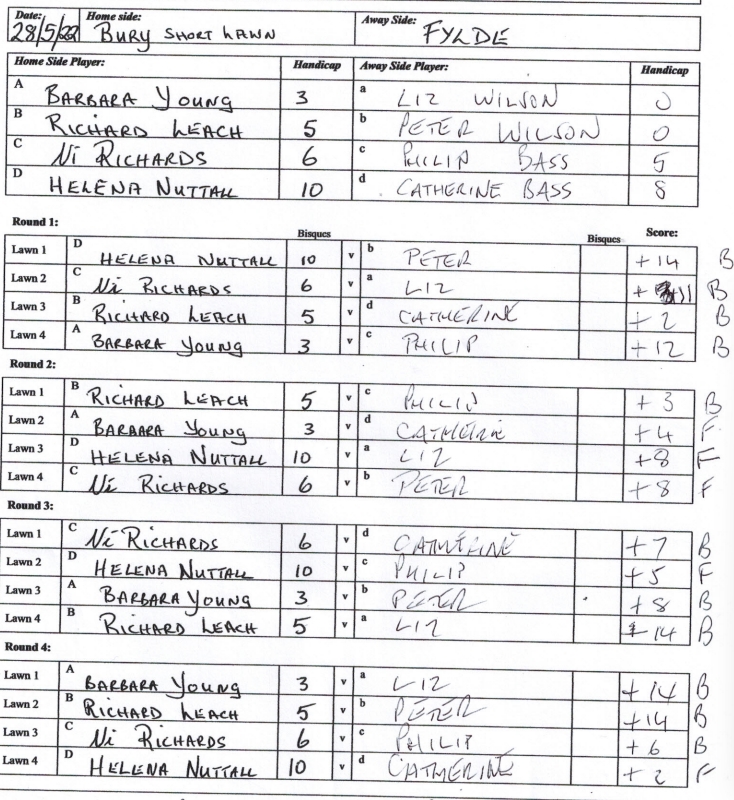 Date: Home side: Away Side:
28/5/22 BURY SHORT LAWN FYLDE
Home Side Player: Handicap Away Side Player: Handicap
A BARBARA YOUNG 3 a LIZ WILSON 0
B RICHARD LEACH 5 b PETER WILSON 0
C Ni RICHARDS 6 c PHILIP BASS 5
D HELENA NUTTALL 10 d CATHERINE BASS 8
Round 1: Bisques Bisques Score:
Lawn 1 D HELENA NUTTALL 10 v b PETER +14 B
Lawn 2 C Ni RICHARDS 6 v a LIZ + 11 B
Lawn 3 B RICHARD LEACH 5 v d CATHERINE + 2 B
Lawn 4 A BARBARA YOUNG 3 v c PHILIP +12 B
Round 2:
Lawn 1 B RICHARD LEACH 5 v c PHILIP + 3 B
Lawn 2 A BARBARA YOUNG 3 v d CATHERINE +4 F
Lawn 3 D HELENA NUTTALL 10 v a LIZ +8 F
Lawn 4 C Ni RICHARDS 6 v b PETER +8 F
Round 3:
Lawn 1 C Ni RICHARDS 6 v d CATHERINE +7 B
Lawn 2 D HELENA NUTTALL 10 v c PHILIP +5 F
Lawn 3 A BARBARA YOUNG 3 v b PETER +8 B
Lawn 4 B RICHARD LEACH 5 v a LIZ +14 B
Round 4:
Lawn 1 A BARBARA YOUNG 3 v a LIZ +14 B
Lawn 2 B RICHARD LEACH 5 v b PETER +14 B
Lawn 3 C Ni RICHARDS 6 v c PHILIP +6 B
Lawn 4 D HELENA NUTTALL 10 v d CATHERINE +2 F